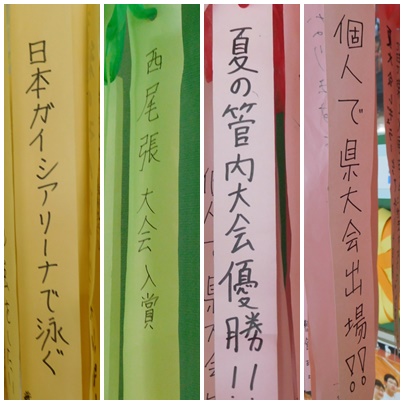 日本ガイシアリーナで泳ぐ
西尾張大会入賞
夏の管内大会優勝!!
個人で県大会出場!!